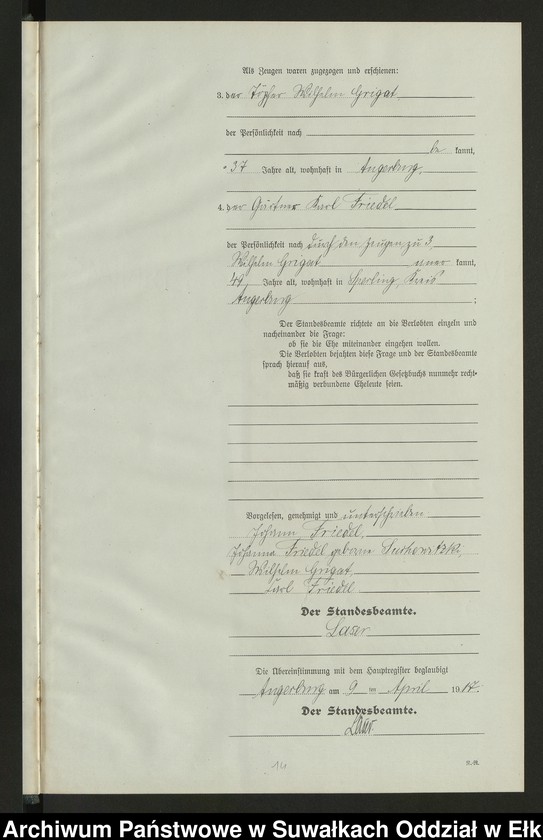 Als Zeugen waren zugezogen und erschienen:
3. der Töpfer Wilhelm Grigat
der Persönlichkeit nach
be kannt,
37 Jahre alt, wohnhaft in Angerburg,
4. der Gärtner Karl Friedel
der Persönlichkeit nach durch den Zeugen zu 3
Wilhelm Grigat kannt,
49 Jahre alt, wohnhaft in Sperling, Kreis
Angerburg ;
Der Standesbeamte richtete an die Verlobten einzeln und
nacheinander die Frage:
ob sie die Ehe miteinander eingehen wollen.
Die Verlobten bejahten diese Frage und der Standesbeamte
sprach hierauf aus,
daß sie kraft des Bürgerlichen Gesetzbuchs nunmehr recht-
mäßig verbundene Eheleute seien.
Vorgelesen, genehmigt und unterschrieben
Johann Friedel
Johanna Friedel geborene
Wilhelm Grigat
Karl Friedel
Der Standesbeamte.
Laser
Die Übereinstimmung mit dem Hauptregister beglaubigt
Angerburg am 9 ten April 1917.
Der Standesbeamte.
Laser
14
Archiwum Państwowe w Suwałkach Oddział w Ełku